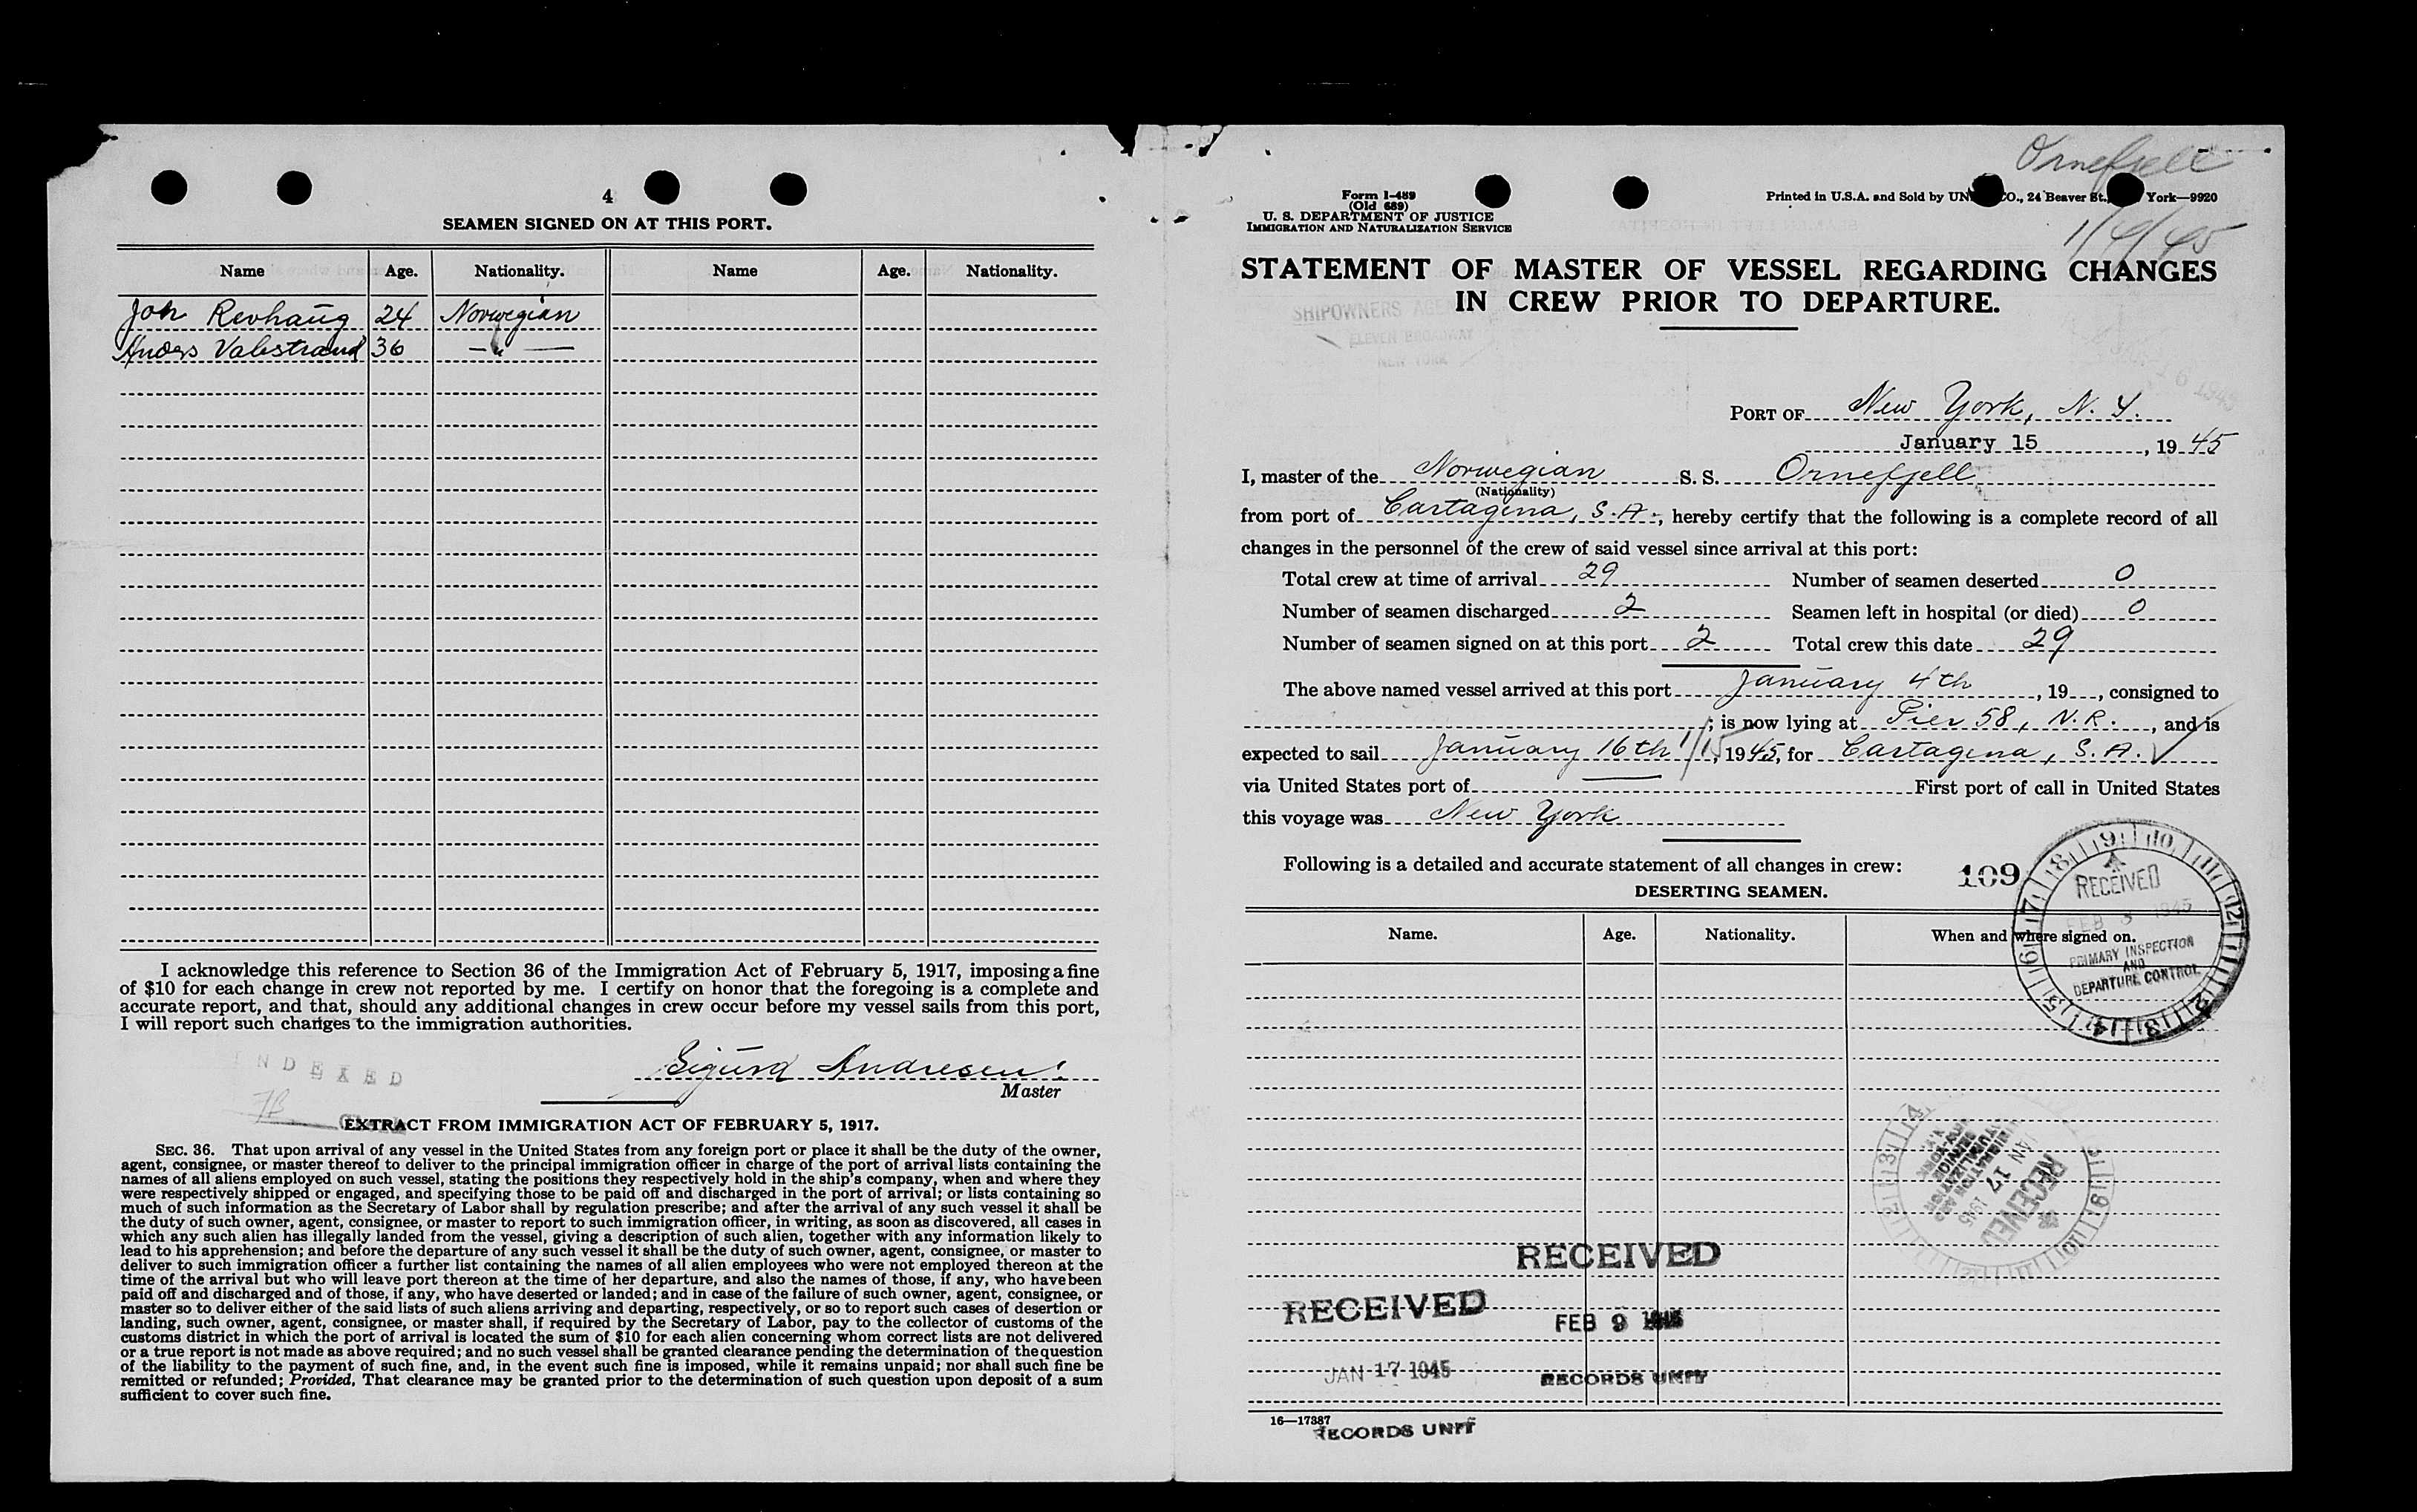 4
SEAMEN SIGNED ON AT THIS PORT.
Name Age. Nationality. Name Age. Nationality.
Joh Revhaug 24 Norwegian
Anders Valestrand 36 —"—
I acknowledge this reference to Section 36 of the Immigration Act of February 5, 1917, imposing a fine
of $10 for each change in crew not reported by me. I certify on honor that the foregoing is a complete and
accurate report, and that, should any additional changes in crew occur before my vessel sails from this port,
I will report such changes to the immigration authorities.
NDEXED
Sigurd Andresen
Master
EXTRACT FROM IMMIGRATION ACT OF FEBRUARY 5, 1917.
SEC. 36. That upon arrival of any vessel in the United States from any foreign port or place it shall be the duty of the owner,
agent, consignee, or master thereof to deliver to the principal immigration officer in charge of the port of arrival lists containing the
names of all aliens employed on such vessel, stating the positions they respectively hold in the ship's company, when and where they
were respectively shipped or engaged, and specifying those to be paid off and discharged in the port of arrival; or lists containing so
much of such information as the Secretary of Labor shall by regulation prescribe; and after the arrival of any such vessel it shall be
the duty of such owner, agent, consignee, or master to report to such immigration officer, in writing, as soon as discovered, all cases in
which any such alien has illegally landed from the vessel, giving a description of such alien, together with any information likely to
lead to his apprehension; and before the departure of any such vessel it shall be the duty of such owner, agent, consignee, or master to
deliver to such immigration officer a further list containing the names of all alien employees who were not employed thereon at the
time of the arrival but who will leave port thereon at the time of her departure, and also the names of those, if any, who have been
paid off and discharged and of those, if any, who have deserted or landed; and in case of the failure of such owner, agent, consignee, or
master so to deliver either of the said lists of such aliens arriving and departing, respectively, or so to report such cases of desertion or
landing, such owner, agent, consignee, or master shall, if required by the Secretary of Labor, pay to the collector of customs of the
customs district in which the port of arrival is located the sum of $10 for each alien concerning whom correct lists are not delivered
or a true report is not made as above required; and no such vessel shall be granted clearance pending the determination of the question
of the liability to the payment of such fine, and, in the event such fine is imposed, while it remains unpaid; nor shall such fine be
remitted or refunded; Provided, That clearance may be granted prior to the determination of such question upon deposit of a sum
sufficient to cover such fine.
Ornefjell
1/4/45
Form I-489
(Old 689)
U. S. DEPARTMENT OF JUSTICE
IMMIGRATION AND NATURALIZATION SERVICE
Printed in U.S.A. and Sold by UN CO., 24 Beaver St., York—9920
STATEMENT OF MASTER OF VESSEL REGARDING CHANGES
IN CREW PRIOR TO DEPARTURE.
SHIPOWNERS AGE
ELEVEN BROADWAY
NEW YORK
PORT OF New York, N. Y.
January 15, 1945
I, master of the Norwegian S. S. Ornefjell
(Nationality)
from port of Cartagena, S.A., hereby certify that the following is a complete record of all
changes in the personnel of the crew of said vessel since arrival at this port:
Total crew at time of arrival 29 Number of seamen deserted 0
Number of seamen discharged 2 Seamen left in hospital (or died) 0
Number of seamen signed on at this port 2 Total crew this date 29
The above named vessel arrived at this port January 4th, 19, consigned to
; is now lying at Pier 58, N.R., and is
expected to sail January 16th 1/15, 1945, for Cartagena, S. A. ✓
via United States port of — First port of call in United States
this voyage was New York
Following is a detailed and accurate statement of all changes in crew:
109
DESERTING SEAMEN.
Name. Age. Nationality. When and where signed on.
RECEIVED
FEB 3 1945
PRIMARY INSPECTION
AND
DEPARTURE CONTROL
RECEIVED
JAN 17 1945
IMMIGRATION AND
NATURALIZATION
SERVICE
RECEIVED
FEB 9 1945
RECORDS UNIT
RECEIVED
JAN 17 1945
RECORDS UNIT
16—17387